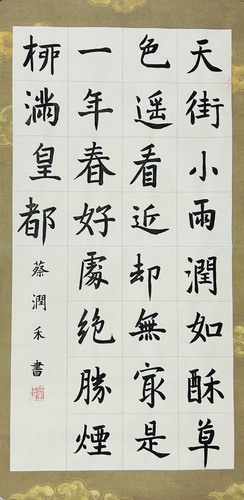 天街小雨潤如酥草
色遥看近却無冣是
一年春好處絶勝煙
栁滿皇都
蔡潤禾書